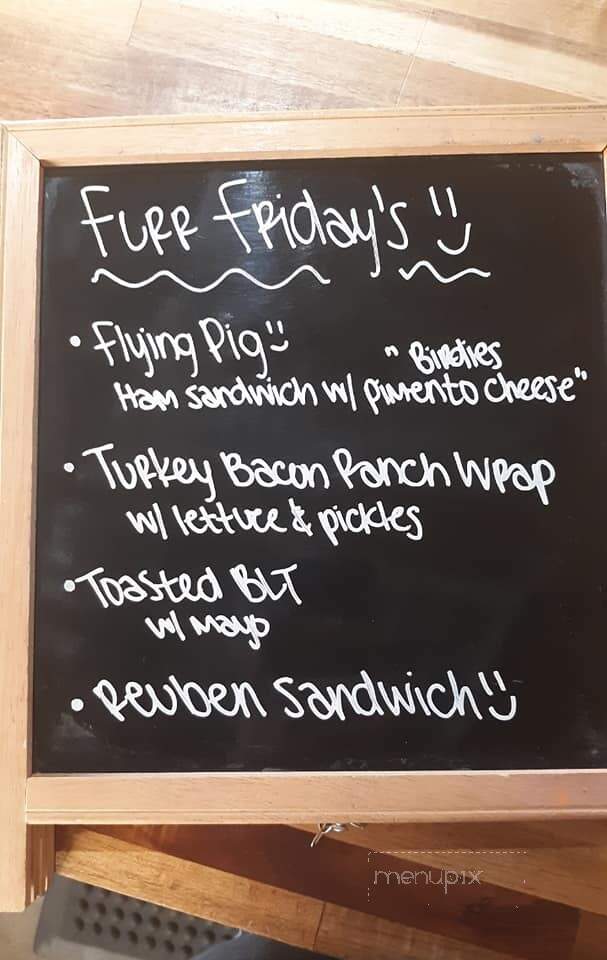 Furr Friday's
• Flying Pig
"Birdies
Ham sandwich w/ pimento cheese"
• Turkey Bacon Ranch Wrap
w/ lettuce & pickles
• Toasted BLT
w/ mayo
• Reuben Sandwich
menupix